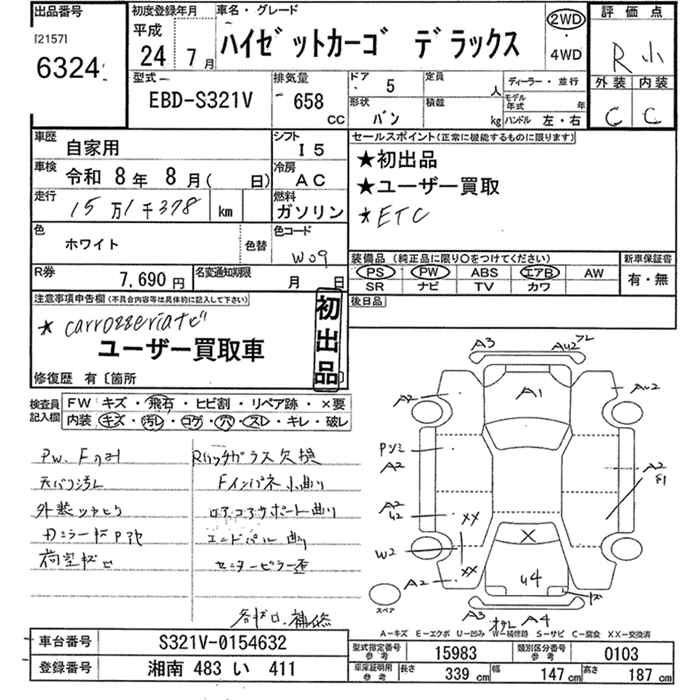 出品番号
[2157]
6324
初度登録年月
平成
24 年 7 月
車名・グレード
ハイゼットカーゴ デラックス
2WD
・
4WD
評価点
R 小
外装 内装
C C
型式
EBD-S321V
排気量
658
CC
ドア
5
定員
人
形状
バン
積載
kg
ディーラー・並行
モデル年式
年
ハンドル 左・右
車歴
自家用
シフト
I5
車検
令和 8年 8月( 日)
冷房
AC
走行
15万1千378 km
燃料
ガソリン
色
ホワイト
色替
色コード
W09
R券
7,690 円
名変通知期限
月 日
セールスポイント(正常に機能するものに限ります)
★初出品
★ユーザー買取
★ETC
装備品(純正品に限り○をつけてください)
PS PW ABS エアB AW
SR ナビ TV カワ
新車保証書
有・無
後日品
注意事項申告欄(不具合内容等は具体的に記入して下さい)
★carrozzeriaナビ
ユーザー買取車
初出品
修復歴 有〔箇所
検査員記入欄
FW キズ・飛石・ヒビ割・リペア跡・×要
内装 キズ・汚レ・コゲ・穴・スレ・キレ・破レ
PW、Fのみ
天バリ汚レ
外装ツヤヒケ
Rハッチガラス交換
Fインパネ小曲り
ロアコアサポート曲り
エンドパネル曲り
センターピラー歪
補修
A3
A2
A1
A2
A2
U2
W2
A2
XX
XX
X
U4
A2
F1
A3
A4
スペア
A－キズ E－エクボ U－凹み W－補修跡 S－サビ C－腐食 XX－交換済
車台番号
S321V-0154632
登録番号
湘南 483 い 411
型式指定番号
参考
15983
類別区分番号
参考
0103
車庫証明用
参考
長さ 339 cm 幅 147 cm 高さ 187 cm